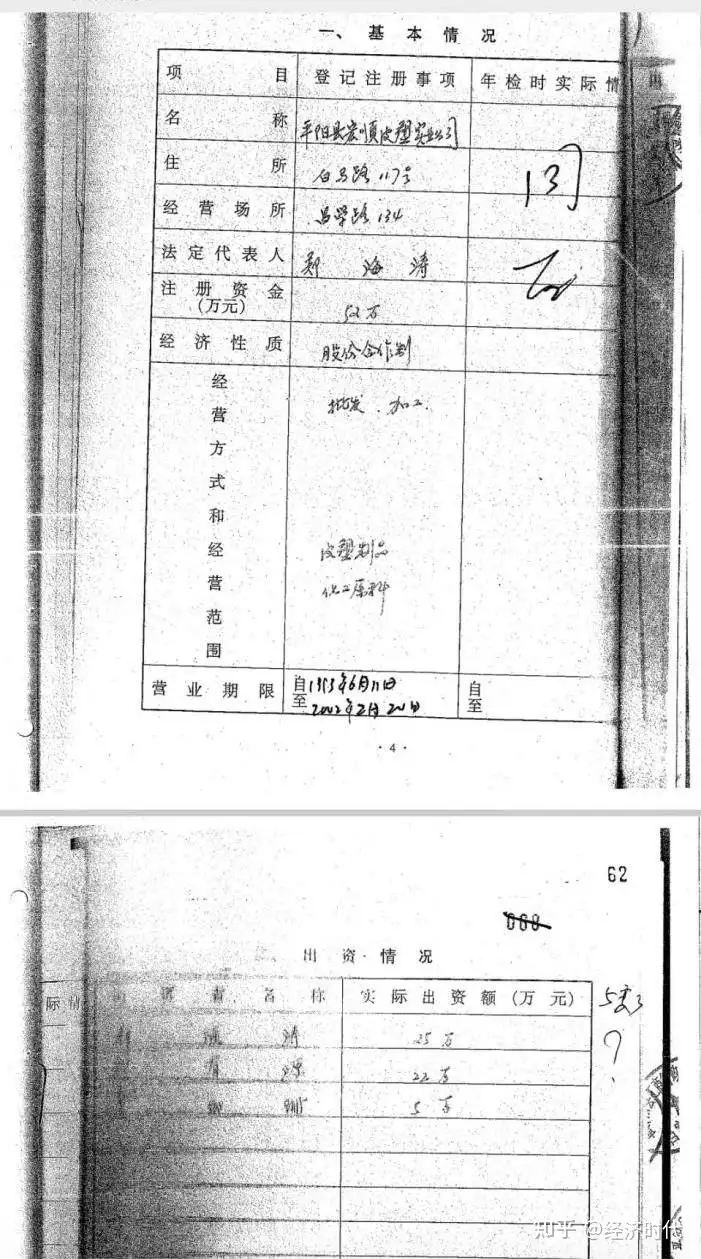 一、基本情况
项目 登记注册事项 年检时实际情
名称 平阳县宏顺皮塑实业公司
住所 白马路117号
经营场所 昌学路134
同
法定代表人 郑海涛
注册资金(万元) 52万
经济性质 股份合作制
经营方式和经营范围 批发.加工.
皮塑制品
化工原料
营业期限 自1993年6月11日 自
至2002年2月20日 至
·4·
62
000
出资情况
际情 资者名称 实际出资额(万元)
海涛 25万
22万
5万
?
知乎 @经济时代